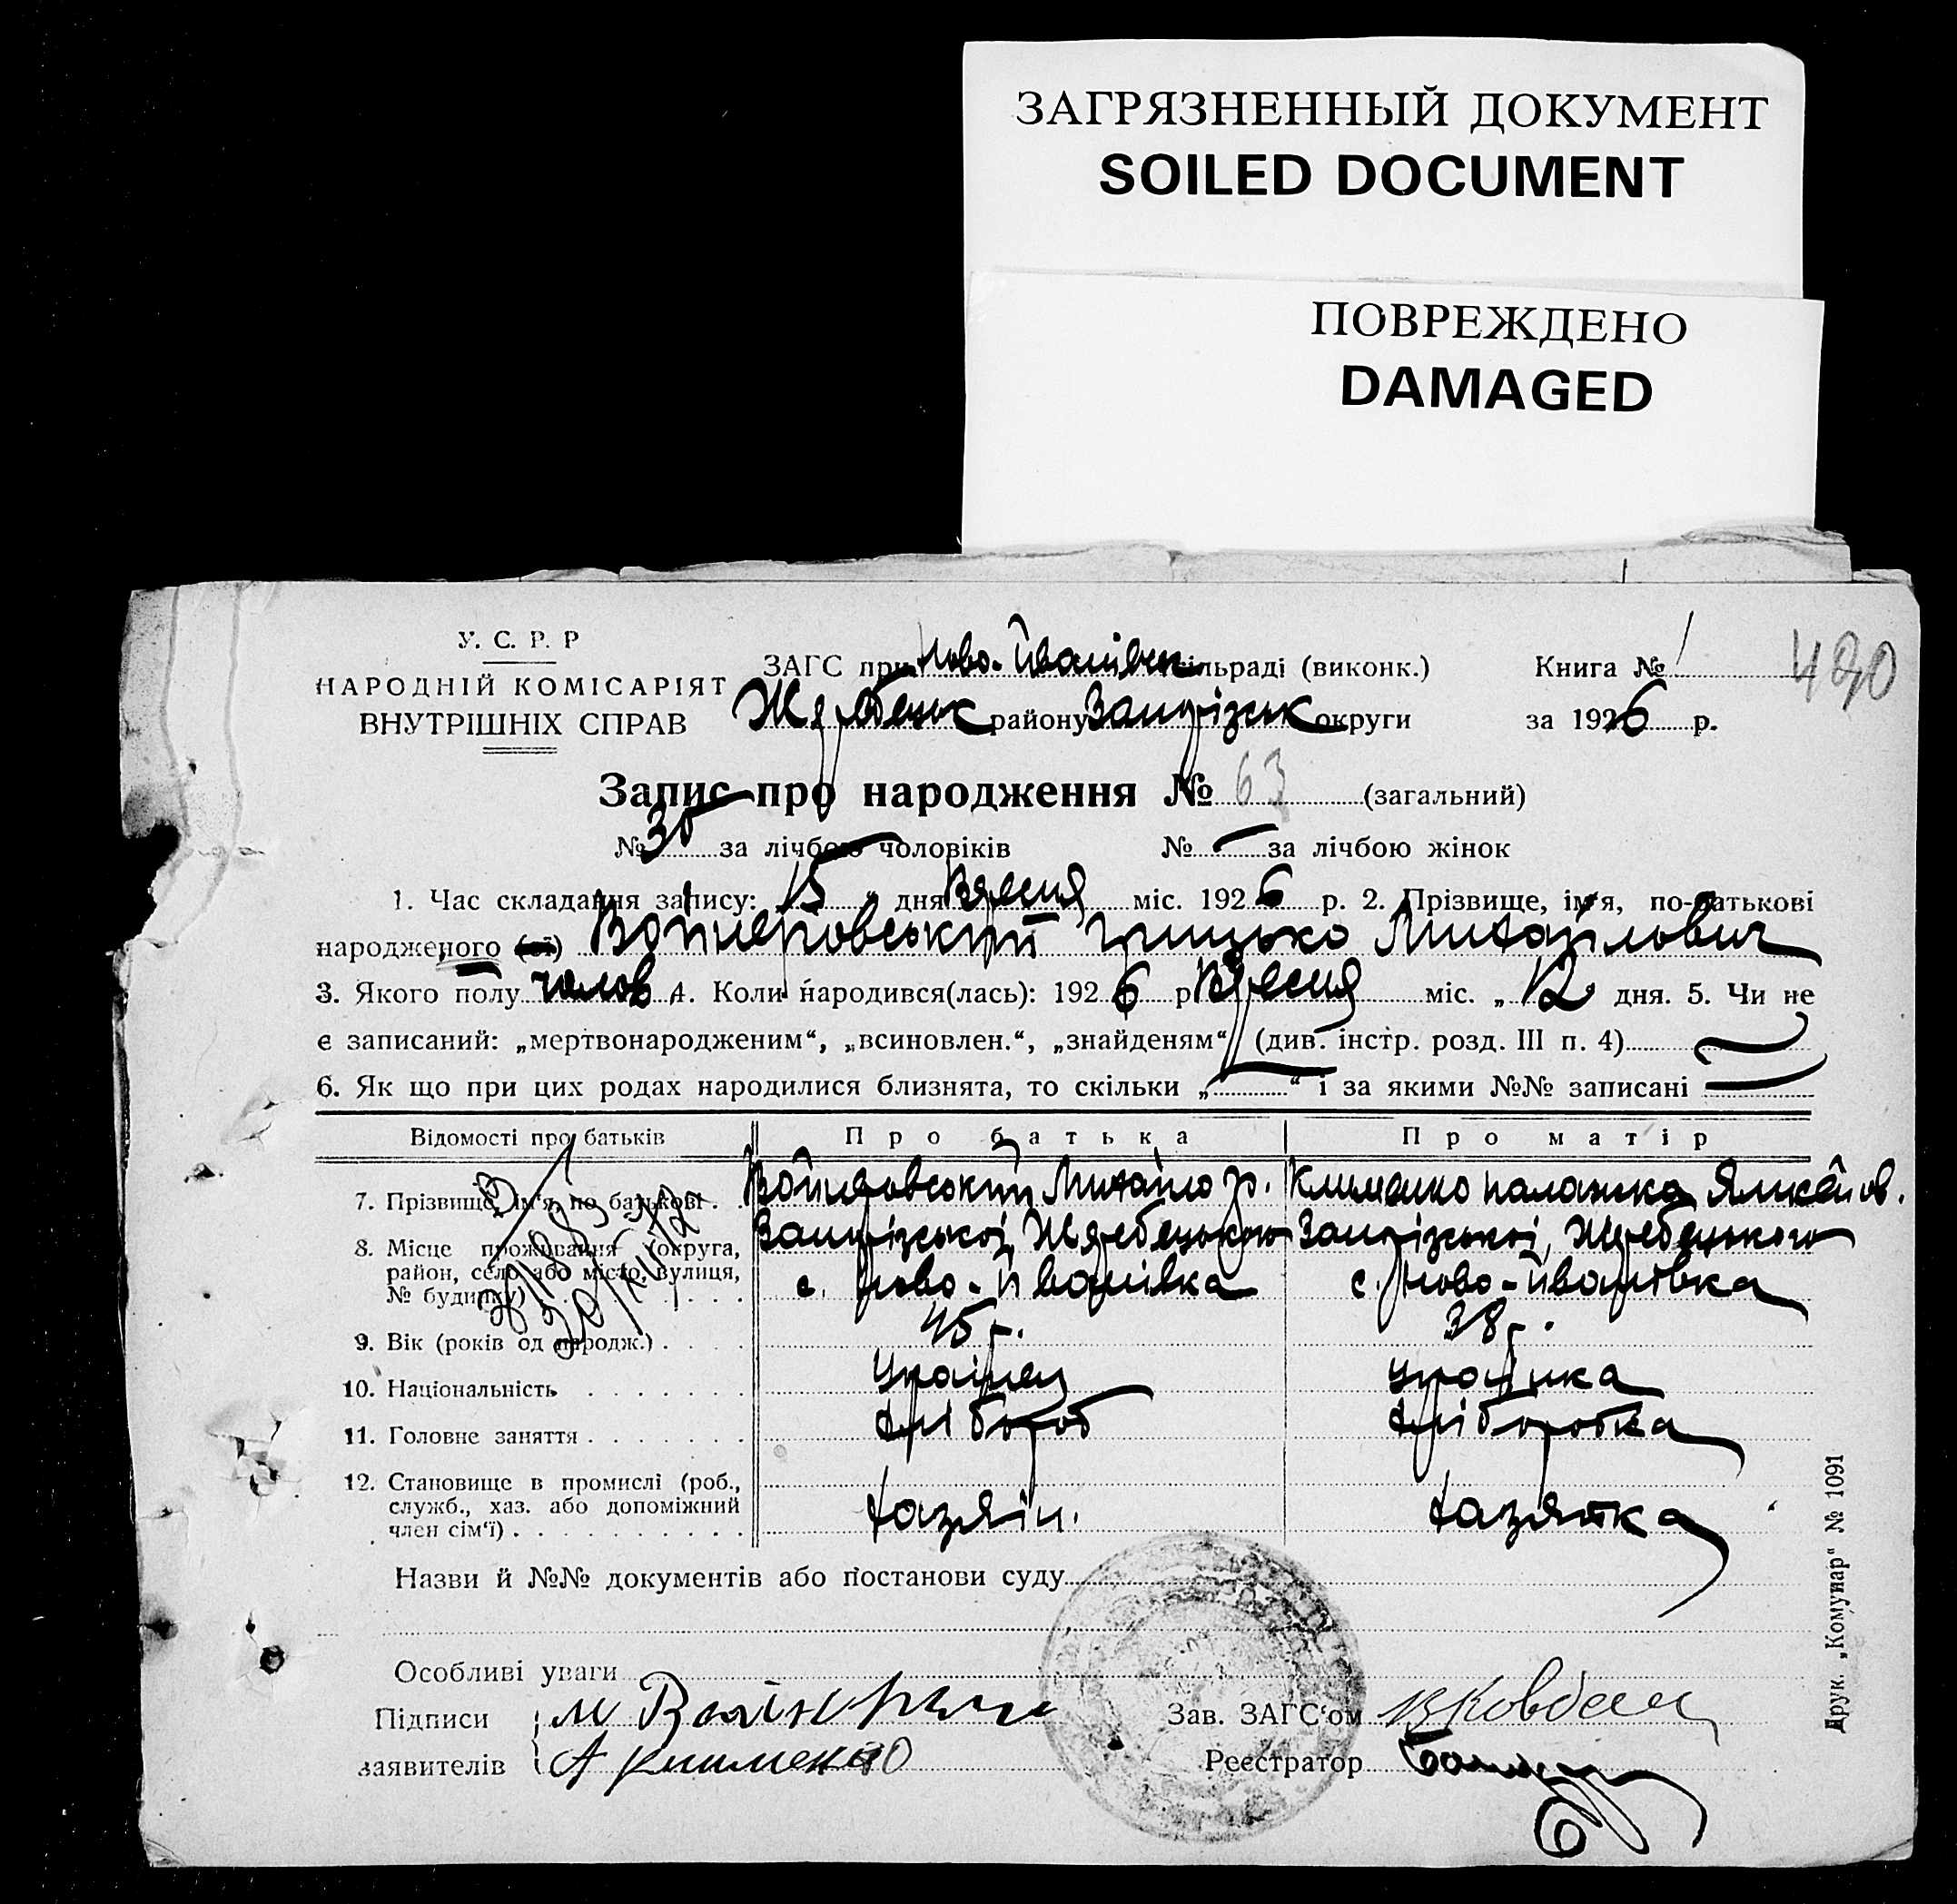 ЗАГРЯЗНЕННЫЙ ДОКУМЕНТ
SOILED DOCUMENT
ПОВРЕЖДЕНО
DAMAGED
У. С. Р. Р
НАРОДНІЙ КОМІСАРІЯТ
ВНУТРІШНІХ СПРАВ
ЗАГС при Ново-Йванівск сільраді (виконк.)
Жеребецьк району Запорізьк округи
Книга № 1
за 1926 р.
490
Запис про народження № 63 (загальний)
№ 35 за лічбою чоловіків № — за лічбою жінок
1. Час складання запису: „15“ дня Вресня міс. 1926 р. 2. Прізвище, ім'я, по-батькові
народженого (ої) Грицько Михайлович
3. Якого полу чолов 4. Коли народився(лась): 1926 р Вресня міс. „12“ дня. 5. Чи не
є записаний: „мертвонародженим“, „всиновлен.“, „знайденям“ (див. інстр. розд. III п. 4) —
6. Як що при цих родах народилися близнята, то скільки „—“ і за якими №№ записані —
Відомості про батьків Про батька Про матір
7. Прізвище, ім'я, по батькові . . Михайло Клименко Палажка
8. Місце проживання (округа, район, село або місто, вулиця, № будинку) . . . .
Запорізької, Жеребецького
с. Ново-Йванівка
Запорізької, Жеребецького
с. Ново-Йванівка
9. Вік (років од народж.) . . . . 45 р. 38 р.
10. Національність . . . . . . .
11. Головне заняття . . . . . . . хлібороб хліборобка
12. Становище в промислі (роб., служб., хаз. або допоміжний член сім'ї) . . . . . . . . . . хазяїн. хазяйка
Назви й №№ документів або постанови суду
Особливі уваги
Підписи
заявителів
М
А Клименко
Зав. ЗАГС'ом
Реєстратор
Друк. „Комунар“ № 1091